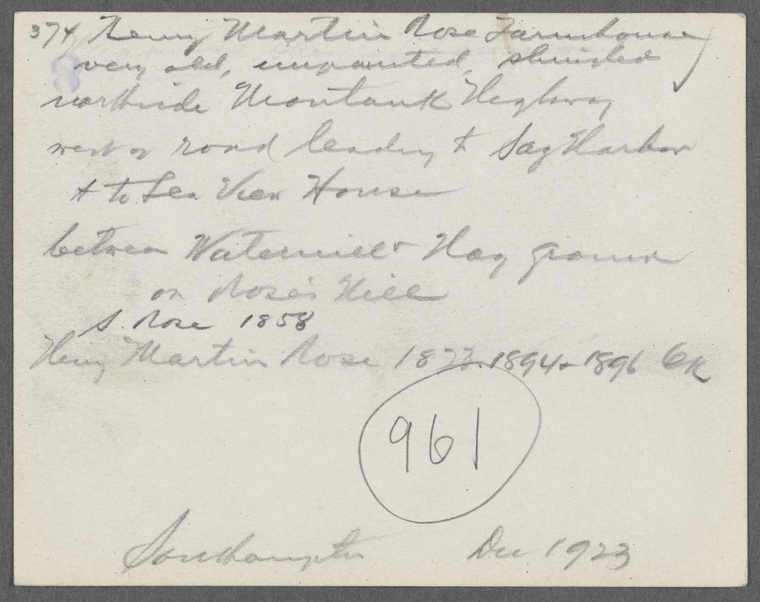 374 Henry Martin Rose Farmhouse
very old, unpainted, shingled
northside Montauk Highway
west of road leading to Sag Harbor
+ to Sea View House
between Watermill + Hay ground
on Rose's Hill
S. Rose 1858
Henry Martin Rose 1873. 1894 + 1896 OK
961
Southampton Dec 1923